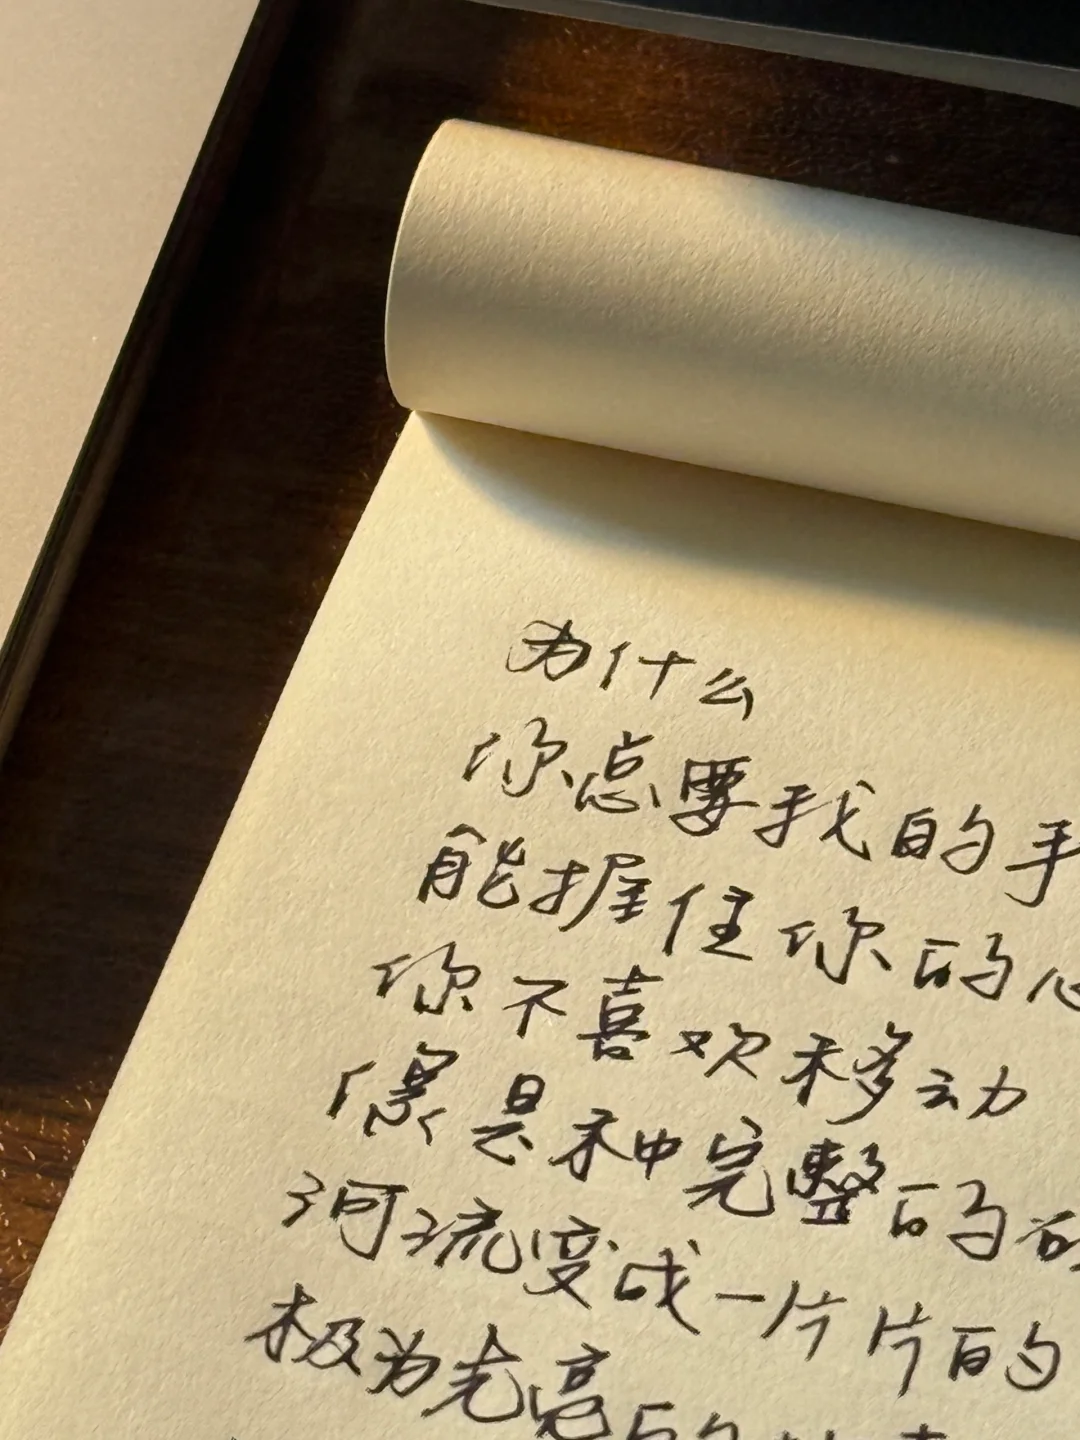 为什么
你总要我的手
能握住你的心
你不喜欢移动
像是种完整的
河流变成一片片的
极为光亮的